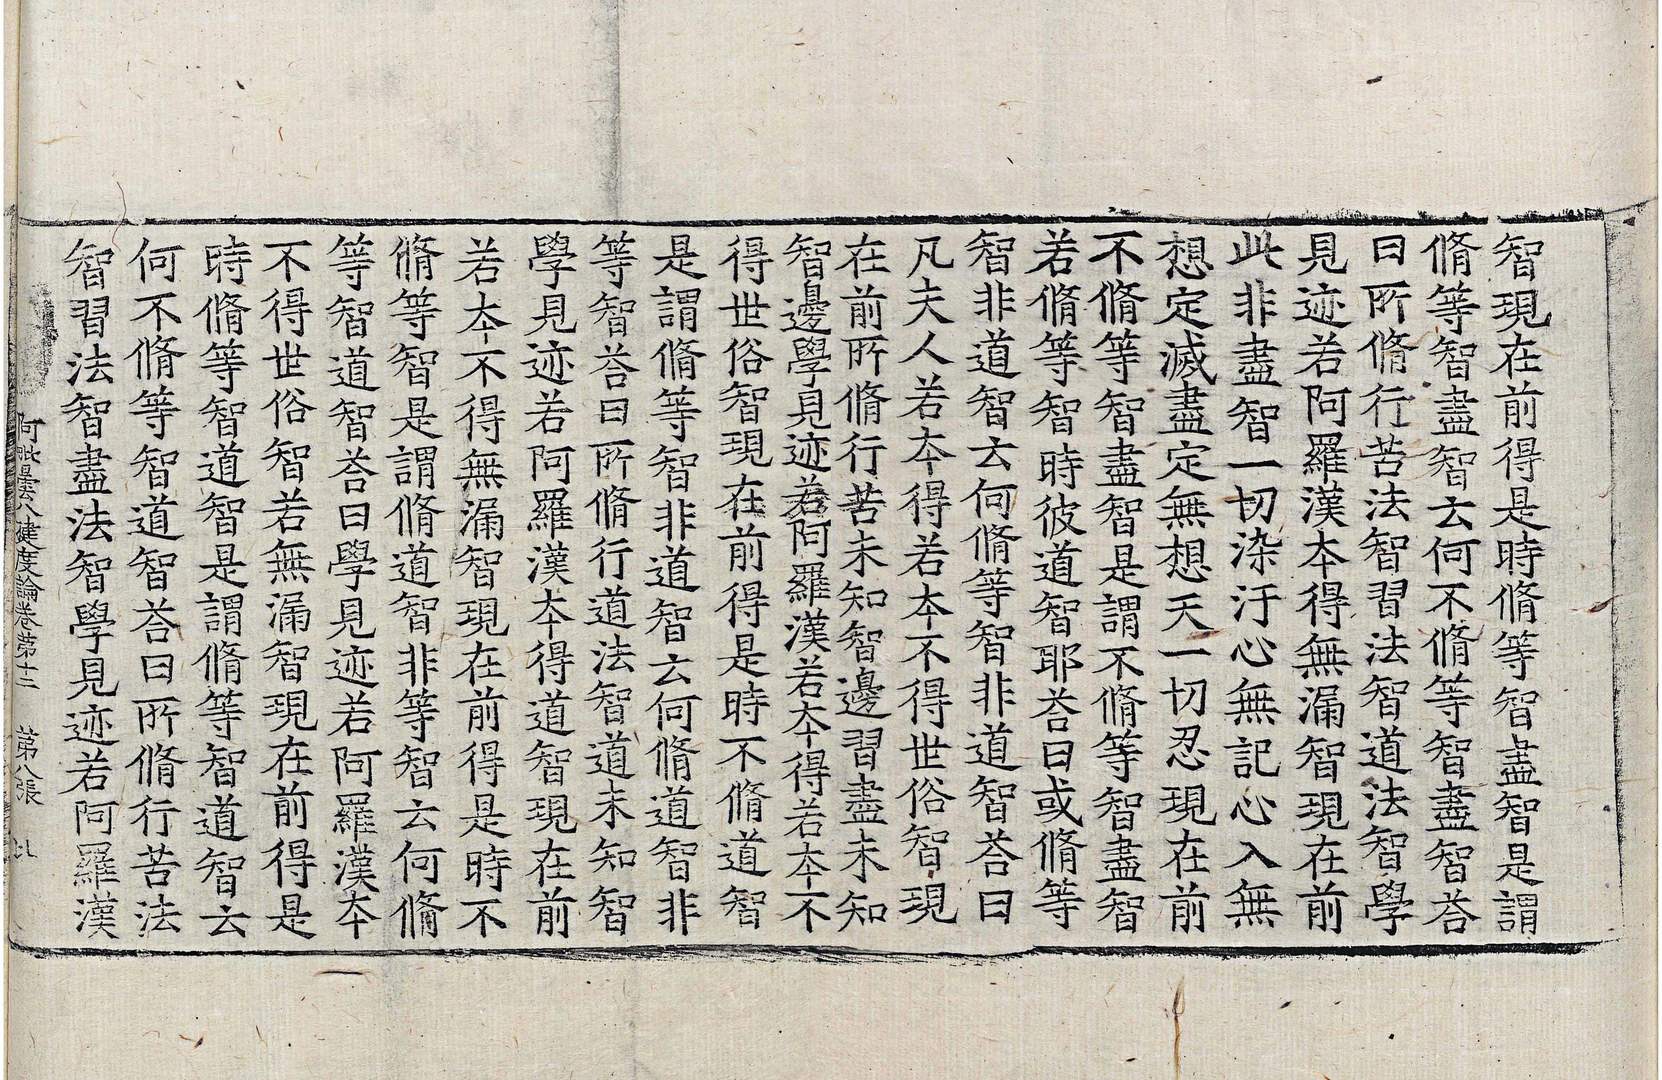 智現在前得是時脩等智盡智是謂
脩等智盡智云何不脩等智盡智荅
曰所脩行苦法智習法智道法智學
見迹若阿羅漢本得無漏智現在前
此非盡智一切染汙心無記心入無
想定滅盡定無想天一切忍現在前
不脩等智盡智是謂不脩等智盡智
若脩等智時彼道智耶荅曰或脩等
智非道智云何脩等智非道智荅曰
凡夫人若本得若本不得世俗智現
在前所脩行苦未知智邊習盡未知
智邊學見迹若阿羅漢若本得若本不
得世俗智現在前得是時不脩道智
是謂脩等智非道智云何脩道智非
等智荅曰所脩行道法智道未知智
學見迹若阿羅漢本得道智現在前
若本不得無漏智現在前得是時不
脩等智是謂脩道智非等智云何脩
等智道智荅曰學見迹若阿羅漢本
不得世俗智若無漏智現在前得是
時脩等智道智是謂脩等智道智云
何不脩等智道智荅曰所脩行苦法
智習法智盡法智學見迹若阿羅漢
阿毗曇八揵度論卷第十二 第八張